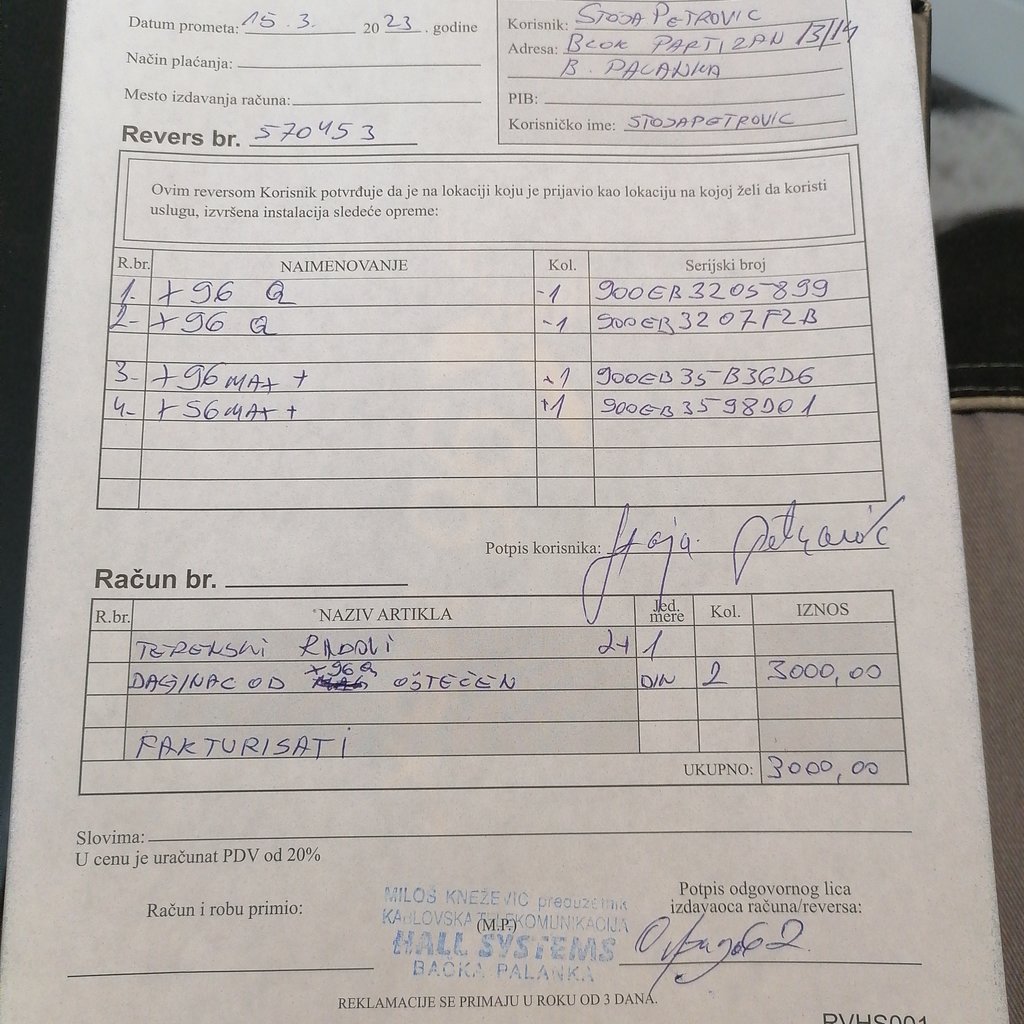 Datum prometa: 15. 3. 2023. godine
Korisnik: STOJA PETROVIC
Način plaćanja:
Adresa: BLOK PARTIZAN 13/14
B. PALANKA
Mesto izdavanja računa:
PIB:
Korisničko ime: STOJAPETROVIC
Revers br. 570453
Ovim reversom Korisnik potvrđuje da je na lokaciji koju je prijavio kao lokaciju na kojoj želi da koristi
uslugu, izvršena instalacija sledeće opreme:
R.br. NAIMENOVANJE Kol. Serijski broj
1. X96 Q -1 900EB3205899
2- X96 Q -1 900EB3207F2B
3- X96 MAX + +1 900EB35B36D6
4- X96 MAX + +1 900EB3598D01
Potpis korisnika: Stoja Petrović
Račun br.
R.br. NAZIV ARTIKLA Jed. mere Kol. IZNOS
TERENSKI RADOVI 2+1
DALJINAC OD X96Q OŠTEĆEN DIN 2 3000,00
FAKTURISATI
UKUPNO: 3000,00
Slovima:
U cenu je uračunat PDV od 20%
Račun i robu primio:
MILOŠ KNEŽEVIĆ preduzetnik
KABLOVSKA TELEKOMUNIKACIJA
(M.P.)
HALL SYSTEMS
BAČKA PALANKA
Potpis odgovornog lica
izdavaoca računa/reversa:
REKLAMACIJE SE PRIMAJU U ROKU OD 3 DANA.
RVHS001